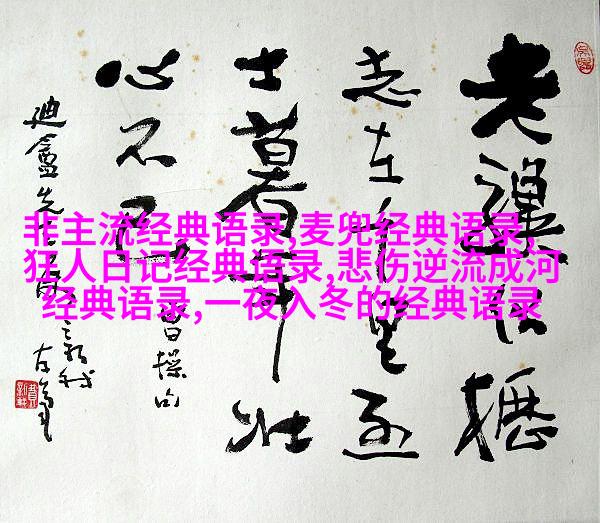 老驥伏櫪
志在千里烈
士暮年壮
心不已
曹操句
先生
非主流经典语录,麦兜经典语录,
狂人日记经典语录,悲伤逆流成河
经典语录,一夜入冬的经典语录